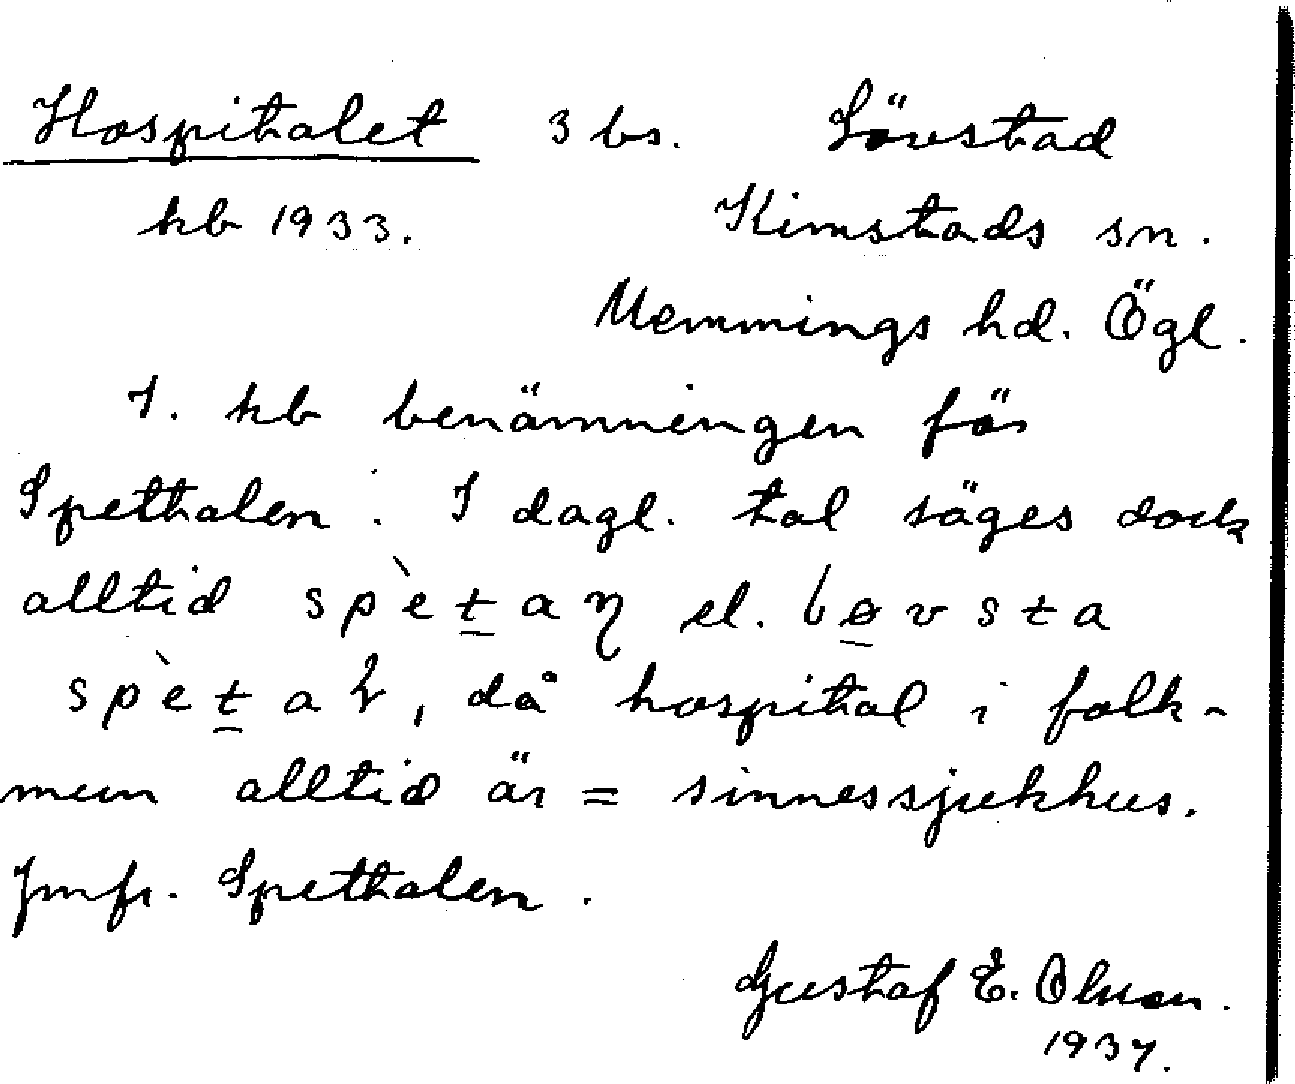 Hospitalet 3 bs. Lövstad
kb 1933. Kimstads sn.
Memmings hd. Ögl.
I. kb benämningen för
Spethalen. I dagl. tal säges dock
alltid spètaŋ el.
spèta, då hospital i folk-
mun alltid är = sinnessjukhus.
Jmfr. Spethalen.
Gustaf E. Olsson.
1937.